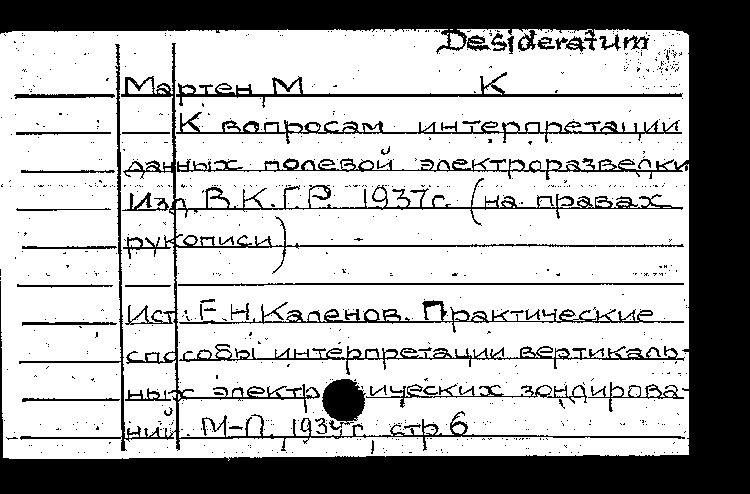 Desideratum
Мартен, М К
К вопросам интерпретации
данных полевой электроразведки
Изд. В.К.Г.Р. 1937г. (на правах
рукописи).
Ист. Е.Н.Каленов. Практические
способы интерпретации вертикаль-
ных электр ических зондирова-
ний. М-Л. г. стр. 6